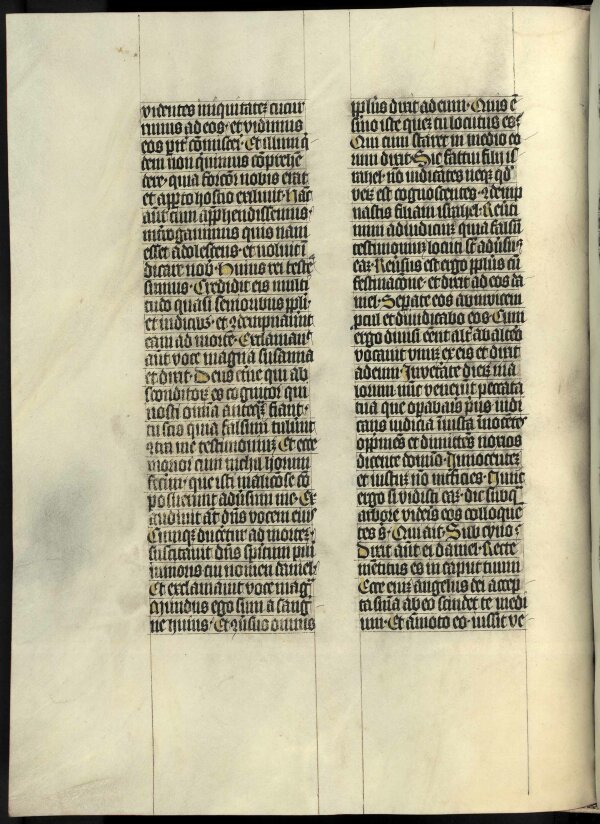 videntes iniquitatez cucur
rimus ad eos · et vidimus
eos pit͛ cōmisceri · Et illum q̄
dem non quiuimus cōprehē
dere · quia forcōr nobis erat
et app̄to hostio exiliuit · Hāc
aūt cum app̄hendissemus ·
int̄rogauimus quis nam
esset adolescens · et noluit ī
dicare nob̄ · Huius rei teste
sumus · Credidit eis multi
tudo quasi senioribus pp̄li ·
et iudicib͛ · et ꝯdempnauūt
eam ad mortē · Exclamau
aūt voce magna susanna
et dixit · Deus et̄ne qui ab
sconditorz es cognitor qui
nosti om̄ia anteqz̄ fiant ·
tu scis quia falsum tulerūt
ꝯtra me testimoniuz · Et ecce
morior cum nichil horum
fecim · que isti maliciose cō
posuerunt aduersum me · Ex
audiuit at̄ dn̄s vocem eius
Cumqz duceret̄ ad mortez ·
suscitauit dn̄s spiritum pue
ri iunioris cui nomen daniel ·
Et exclamauit voce mag
Mundus ego sum a sangu
ne huius · Et ꝯuersus omnis
pp̄lus dixit ad eum · Quis ē
sermo iste quez tu locutus es ·
Qui cum staret in medio eo
rum dixit · Sic fatui filii is
rahel · nō iudicātes neqz qd̄
verz est cognoscentes · ꝯdemp
nastis filiam israhel · Reūti
mini ad iudiciuz · quia falsū
testimonium locuti st̄ aduersus
eaz · Reūsus est ergo pp̄lus cū
festinacōne · et dixit ad eos da
niel · Separate eos abinuicem
procul et diiudicabo eos · Cum
ergo diuisi eent alt͛ ab altero
vocauit vnuz ex eis et dixit
ad eum · Inueterate dierz ma
lorum nūc venerūt peccata
tua que opabaris prius iudi
cans iudicia iniusta · innocētes
opp̄mēs et dimittēs noxios
dicente domīo · Innocentez
et iustuz nō interficies · Nunc
ergo si vidisti eaz · dic sub qua
arbore videris eos colloquē
tes s̄ · Qui ait · Sub cyno ·
Dixit aūt ei daniel · Recte
mentitus es in caput tuum
Ecce enīz angelus dei accep
ta sn̄ia ab eo scindet te medi
um · Et amoto eo · iussit ve